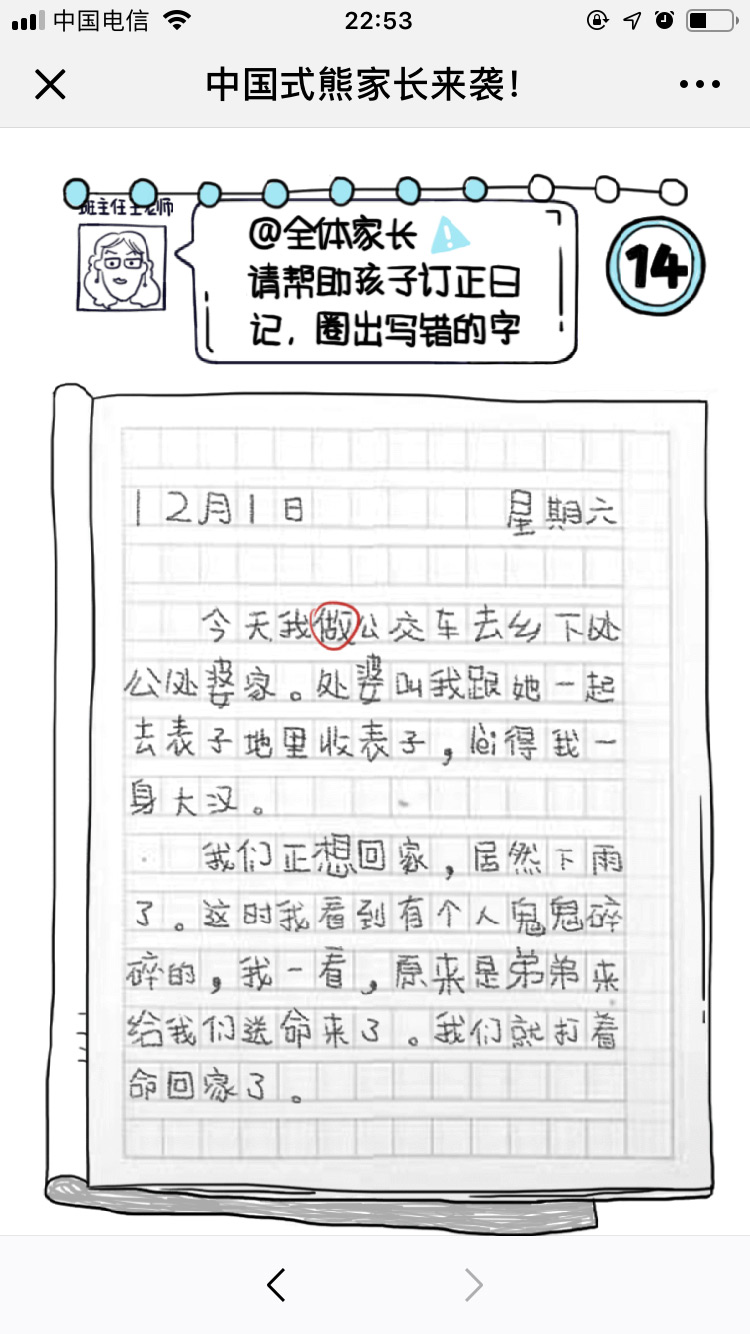 中国电信 22:53
中国式熊家长来袭!
班主任王老师
@全体家长
请帮助孩子订正日
记，圈出写错的字
14
12月1日 星期六
今天我做公交车去乡下处
公处婆家。处婆叫我跟她一起
去表子地里收表子，lèi得我一
身大汉。
我们正想回家，居然下雨
了。这时我看到有个人鬼鬼碎
碎的，我一看，原来是弟弟来
给我们送命来了。我们就打着
命回家了。